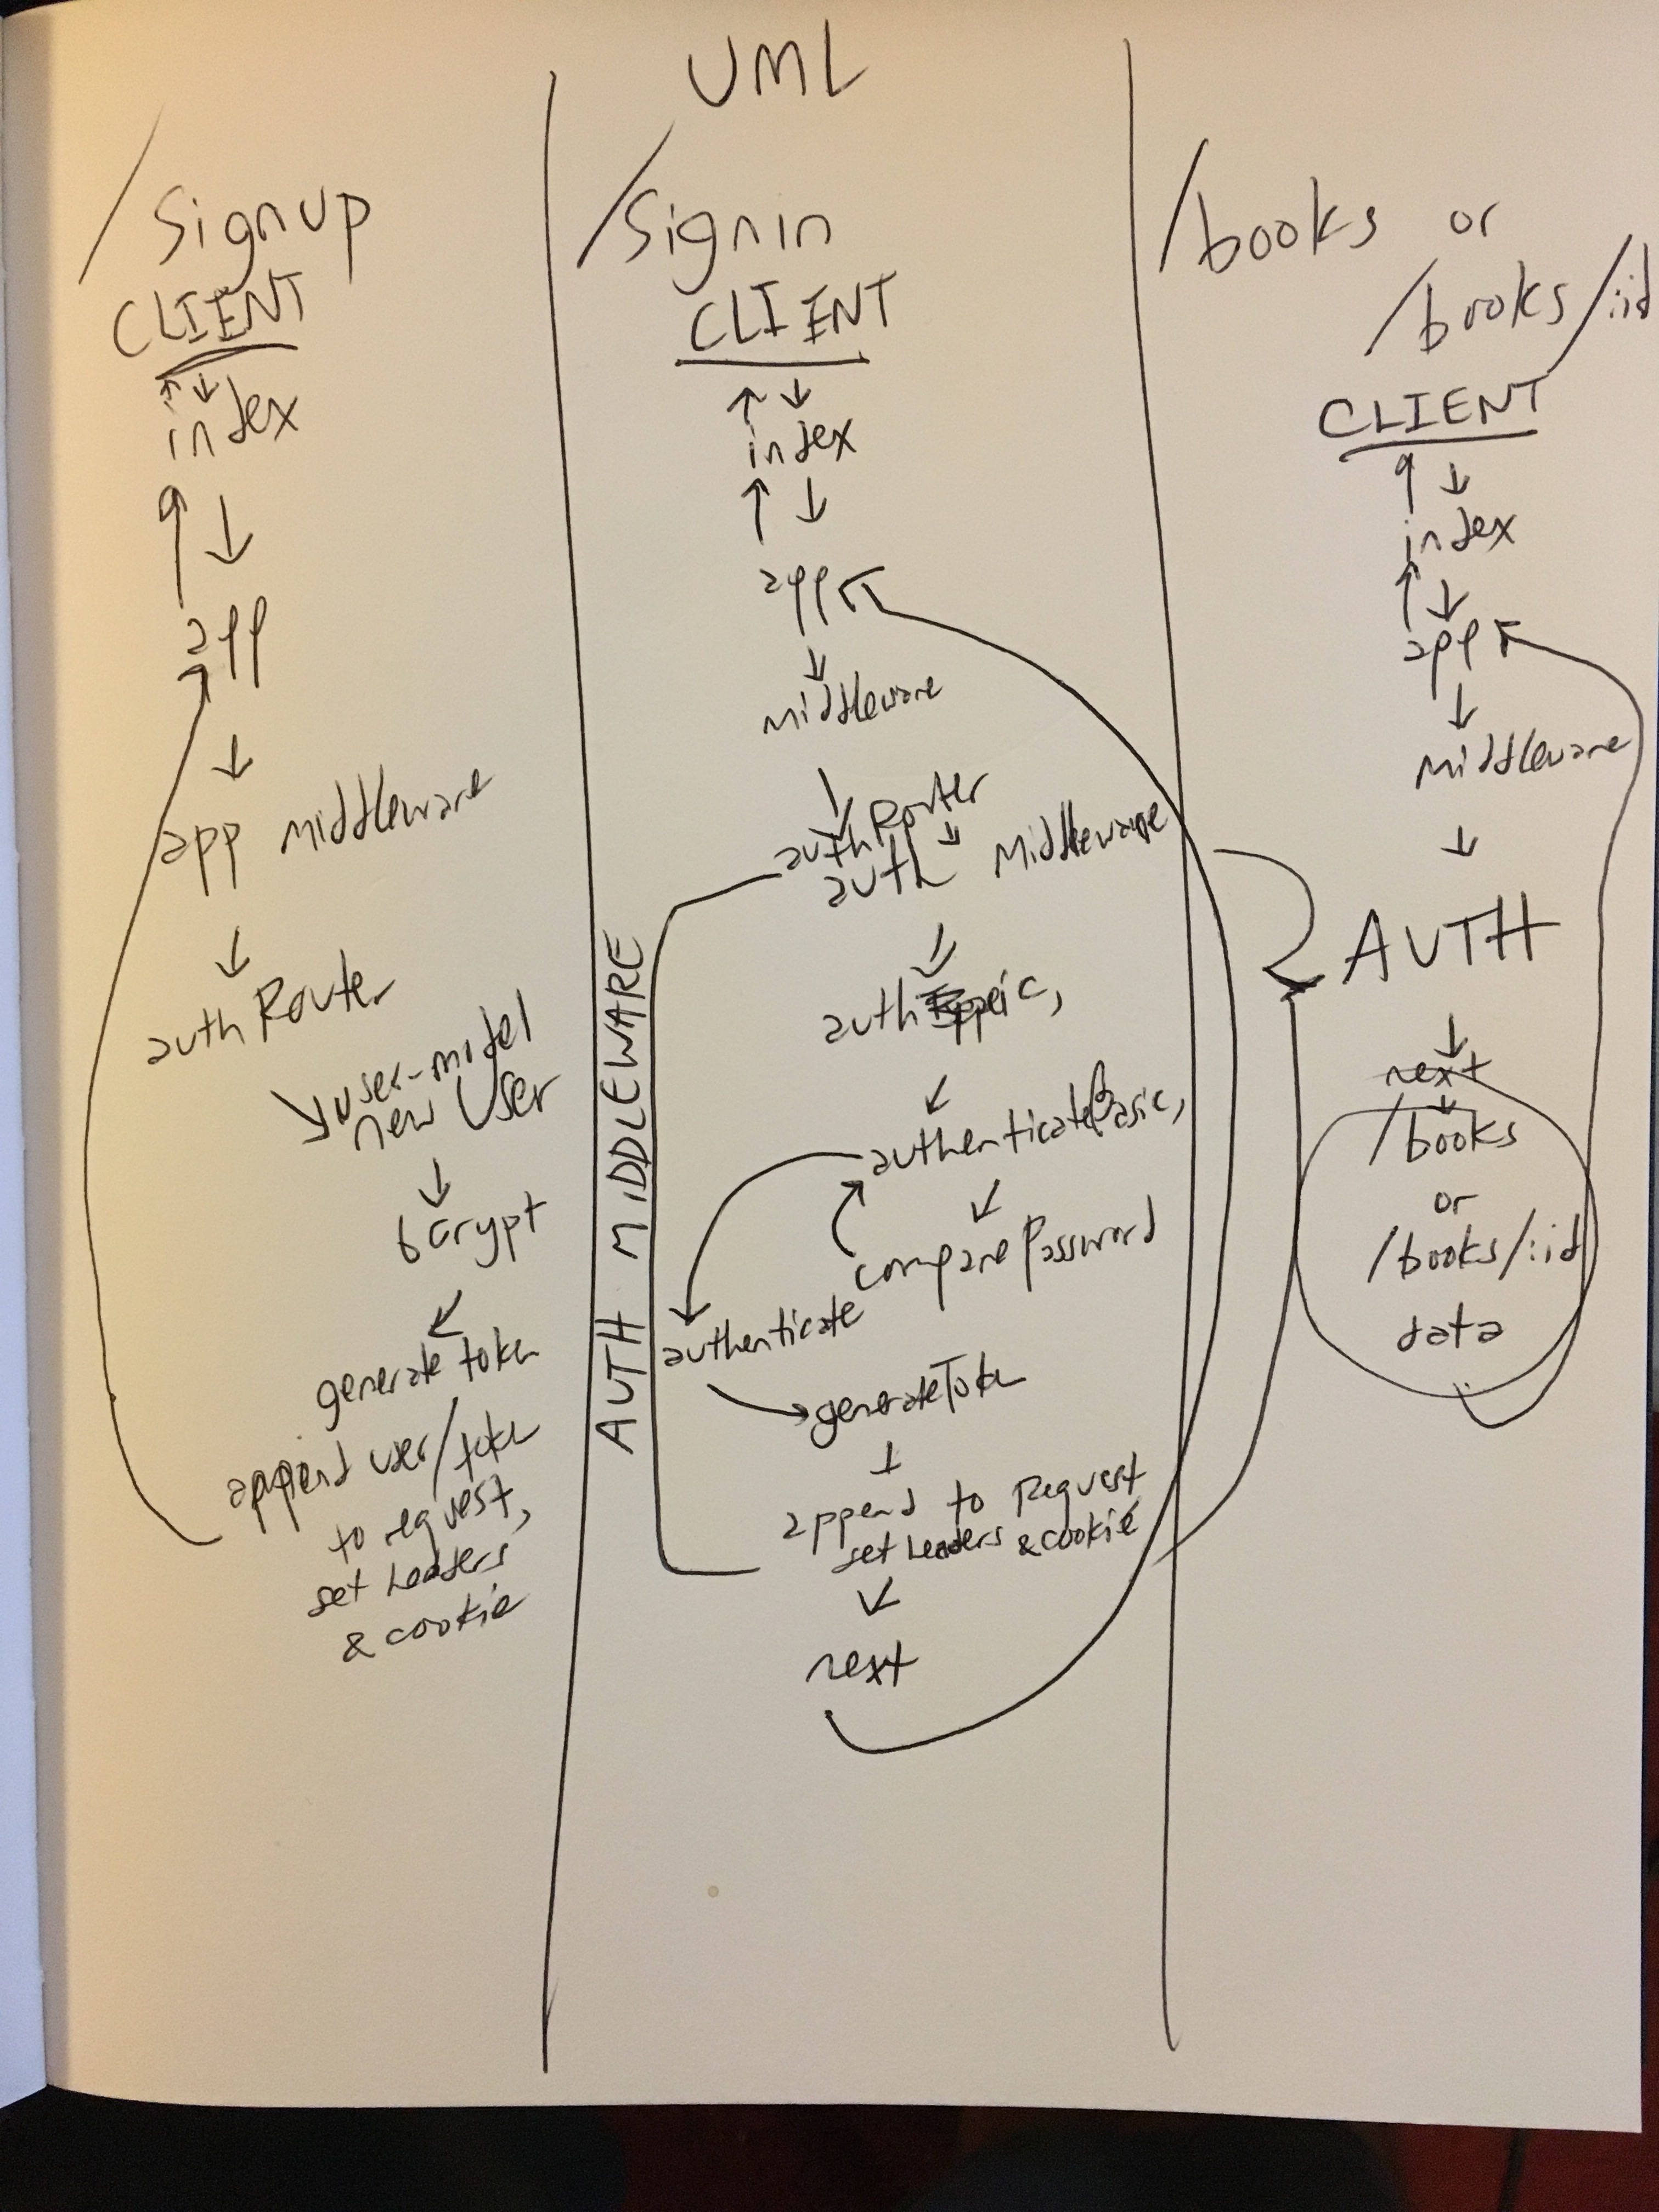 UML
/Signup
CLIENT
index
app
app middleware
authRouter
user-model
new User
bcrypt
generate token
append user/token
to request,
set headers
& cookie
/Signin
CLIENT
index
app
middleware
authRouter
auth middleware
auth
authenticateBasic,
comparePassword
authenticate
generateToken
append to Request
set headers & cookie
next
AUTH MIDDLEWARE
/books or
/books/:id
CLIENT
index
app
middleware
AUTH
next
/books
or
/books/:id
data